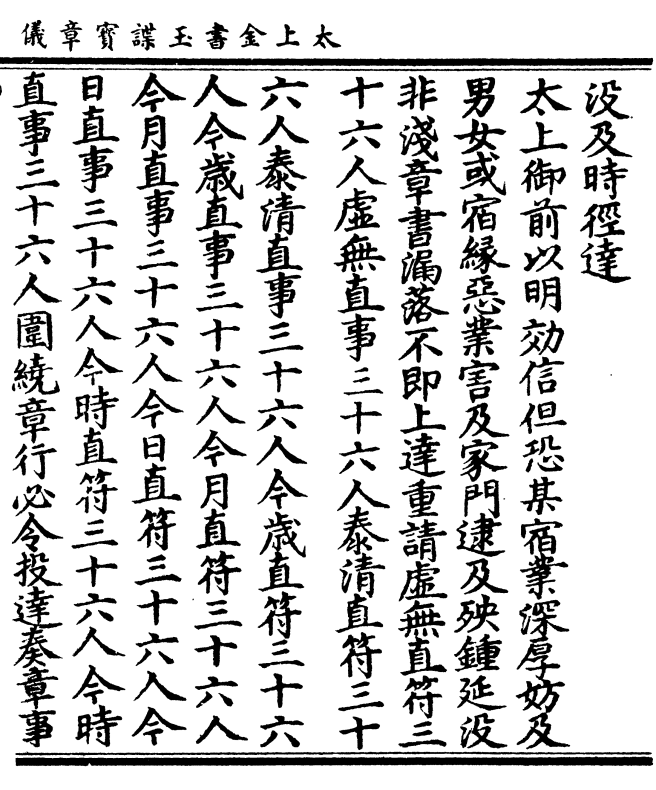 太上金書玉諜寶章儀
没及時徑達
太上御前以明効信但恐某宿業深厚妨及
男女或宿緣惡業害及家門逮及殃鍾延没
非淺章書漏落不即上達重請虛無直符三
十六人虛無直事三十六人泰清直符三十
六人泰清直事三十六人今歲直符三十六
人今歲直事三十六人今月直符三十六人
今月直事三十六人今日直符三十六人今
日直事三十六人今時直符三十六人今時
直事三十六人圍繞章行必令投達奏章事